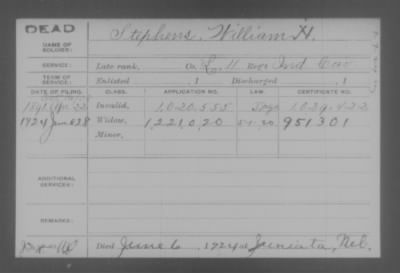 DEAD
NAME OF SOLDIER: Stephens, William H.
SERVICE: Late rank, Co. H. Reg't Ind Cav
TERM OF SERVICE: Enlisted , 1 Discharged , 1
DATE OF FILING. CLASS. APPLICATION NO. LAW. CERTIFICATE NO.
1891 22 Invalid, 1,020,555
1924 June 28 Widow, 1,221,020 5-1-20 951301
Minor,
ADDITIONAL SERVICES:
REMARKS:
Died June 6, 1924 at Juniata, Neb.